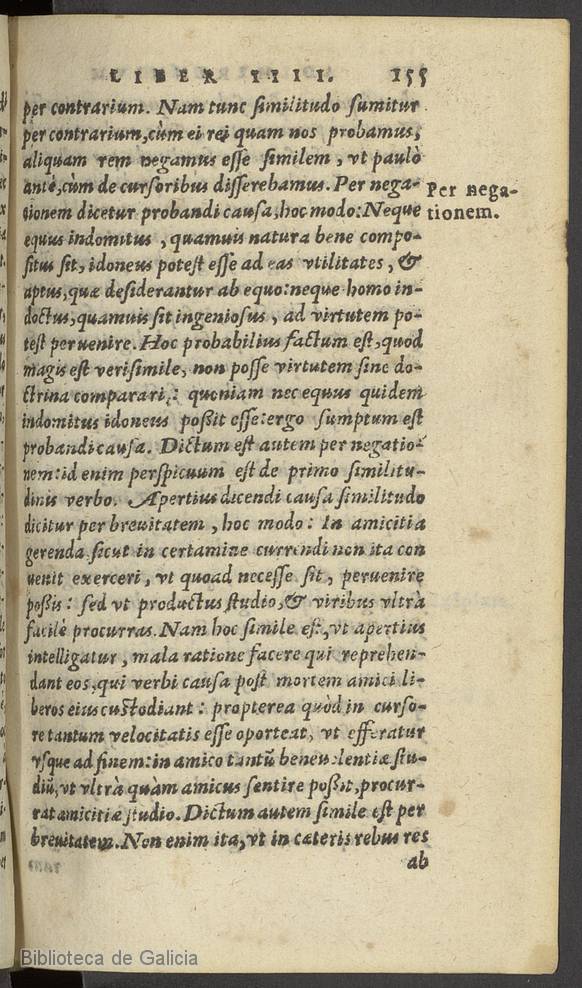 LIBER IIII. 155
per contrarium. Nam tunc similitudo sumitur
per contrarium, cùm ei rei quam nos probamus,
aliquam rem negamus esse similem, vt paulò
antè, cùm de cursoribus disserebamus. Per nega-
tionem dicetur probandi causa, hoc modo: Neque
equus indomitus, quamuis natura bene compo-
situs sit, idoneus potest esse ad eas vtilitates, &
aptus, quæ desiderantur ab equo: neque homo in-
doctus, quamuis sit ingeniosus, ad virtutem po-
test peruenire. Hoc probabilius factum est, quod
magis est verisimile, non posse virtutem sine do-
ctrina comparari: quoniam nec equus quidem
indomitus idoneus poßit esse: ergo sumptum est
probandi causa. Dictum est autem per negatio-
nem: id enim perspicuum est de primo similitu-
dinis verbo. Apertius dicendi causa similitudo
dicitur per breuitatem, hoc modo: In amicitia
gerenda sicut in certamine currendi non ita con
uenit exerceri, vt quoad necesse sit, peruenire
poßis: sed vt productus studio, & viribus vltrà
facilè procurras. Nam hoc simile est, vt apertius
intelligatur, mala ratione facere qui reprehen-
dant eos, qui verbi causa post mortem amici li-
beros eius custodiant: propterea quòd in curso-
re tantum velocitatis esse oporteat, vt efferatur
vsque ad finem: in amico tantũ beneuolentiæ stu-
diũ, vt vltrà quàm amicus sentire poßit, procur-
rat amicitiæ studio. Dictum autem simile est per
breuitatem. Non enim ita, vt in cæteris rebus res
ab
Per nega-
tionem.
Biblioteca de Galicia